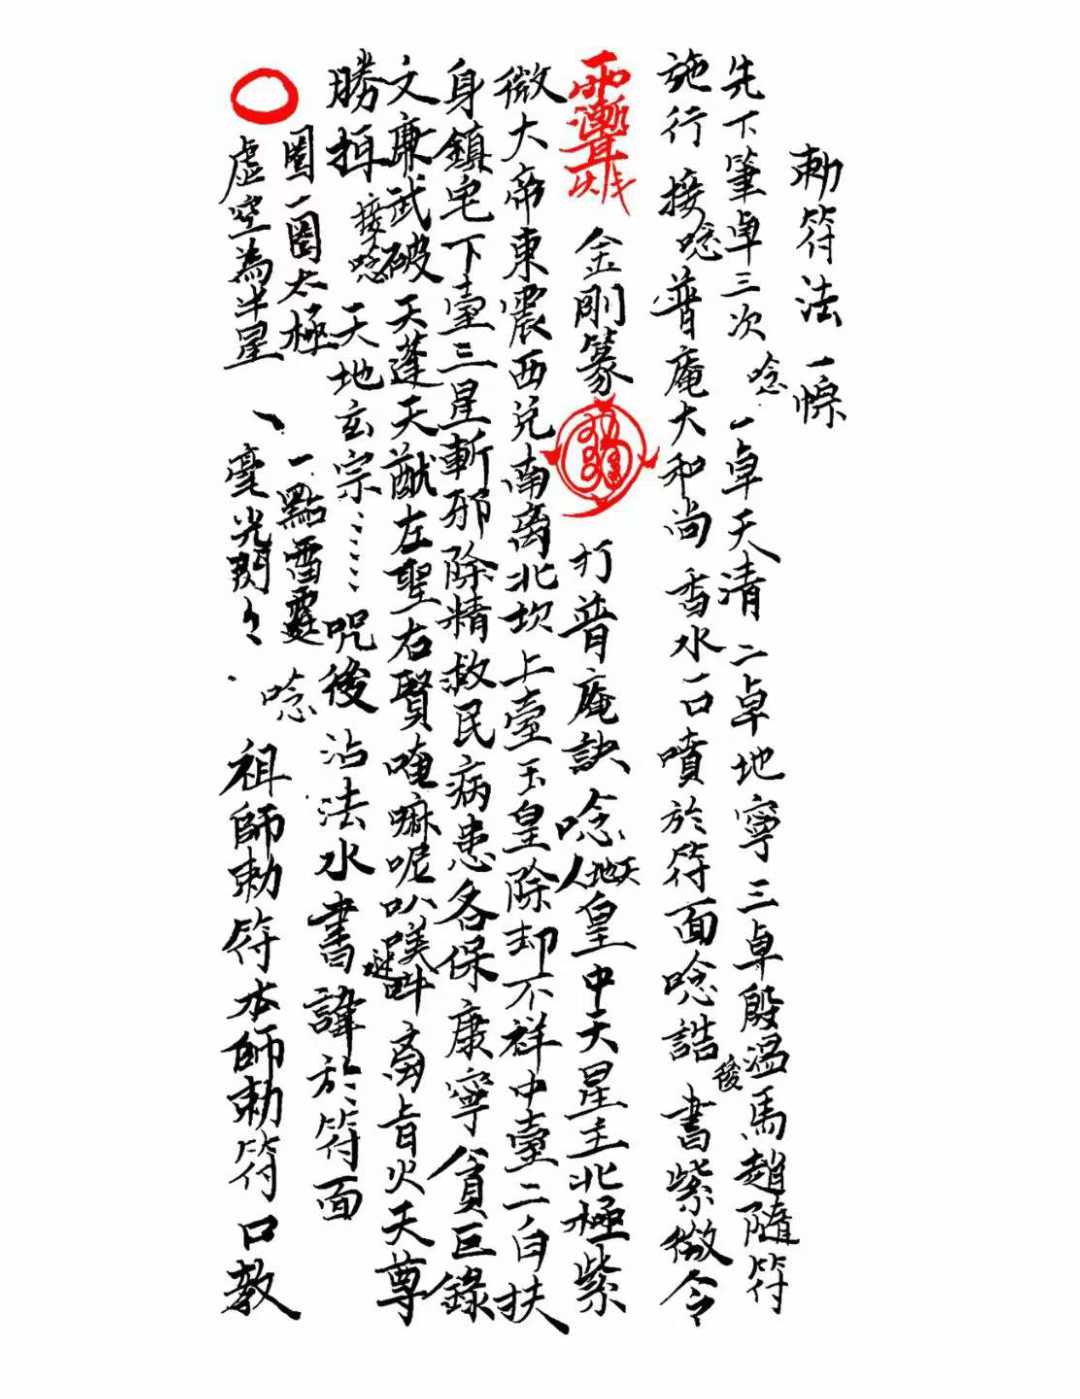 勅符法一條
先下筆卓三次 唸 一卓天清 二卓地寧 三卓殷温馬趙隨符
施行 接唸 普庵大和尚 香水一口噴於符面唸誥後書紫微令
金剛篆 打普庵訣唸天地人皇中天星主北極紫
微大帝東震西兌南离北坎上臺玉皇除却不祥中臺二白扶
身鎮宅下臺三星斬邪除精救民病患各保康寧貪巨錄
文廉武破天蓬天猷左聖右賢唵嘛呢叭㖼吽 离旨火天尊
勝 接唸 天地玄宗……咒後沾法水書諱於符面
圈一圈太極 一點雷霆 唸
虛空為半星 、毫光閃々 祖師勅符本師勅符口教